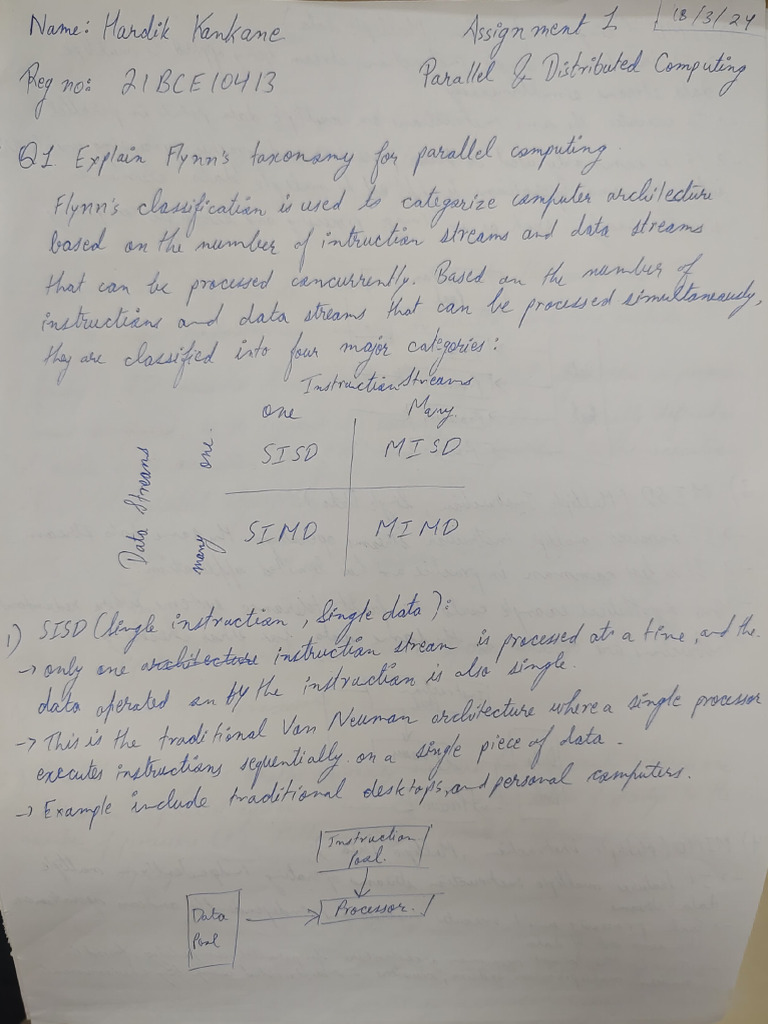 Name: Hardik Kankane
Assignment 1
18/3/24
Reg no: 21BCE10413
Parallel & Distributed Computing
Q1 Explain Flynn's taxonomy for parallel computing.
Flynn's classification is used to categorize computer architecture
based on the number of intruction streams and data streams
that can be processed concurrently. Based on the number of
instructions and data streams that can be processed simultaneously,
they are classified into four major categories:
Instruction Streams
one Many.
Data Streams
one.
SISD MISD
many
SIMD MIMD
1) SISD (Single instruction, Single data):
→ only one architecture instruction stream is processed at a time, and the
data operated on by the instruction is also single.
→ This is the traditional Von Neuman architecture where a single processor
executes instructions sequentially on a single piece of data.
→ Example include traditional desktops, and personal computers.
Instruction
Pool.
Data
Pool
Processor.